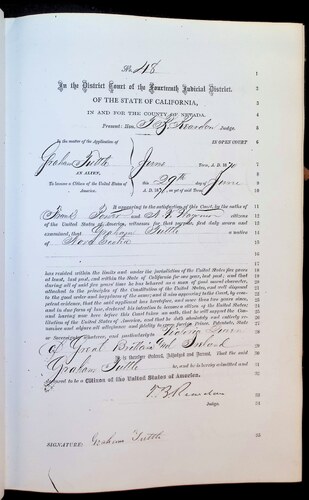 No. 48 1
2
In the District Court of the Fourteenth Judicial District. 3
OF THE STATE OF CALIFORNIA, 4
IN AND FOR THE COUNTY OF NEVADA. 5
Present: Hon. T. B. Reardon Judge. 6
In the matter of the Application of IN OPEN COURT 7
Graham Tuttle June Term, A. D. 1870 8
AN ALIEN, this 29th day of June 9
To become a Citizen of the United States of America. A. D. 187
It appearing to the satisfaction of this Court, by the oaths of 11
Frank and citizens 12
of the United States of America, witnesses for that purpose, first duly sworn and 13
examined, that Graham Tuttle a native 14
of Nova Scotia 15
has resided within the limits and under the jurisdiction of the United States five years
at least, last past, and within the State of California for one year, last past; and that
during all of said five years' time he has behaved as a man of good moral character,
attached to the principles of the Constitution of the United States, and well disposed
to the good order and happiness of the same; and it also appearing to the Court, by com-
petent evidence, that the said applicant has heretofore, and more than two years since,
and in due form of law, declared his intention to become a citizen of the United States;
and having now here before this Court taken an oath, that he will support the Con-
stitution of the United States of America, and that he doth absolutely and entirely re-
nounce and abjure all allegiance and fidelity to every foreign Prince, Potentate, State
or Sovereignty whatever, and particularly to Victoria Queen
of Great Britain and Ireland
It is therefore Ordered, Adjudged and Decreed, That the said
Graham Tuttle be, and he is hereby admitted and
declared to be a Citizen of the United States of America.
T. B. Reardon
Judge.
SIGNATURE: Graham Tuttle